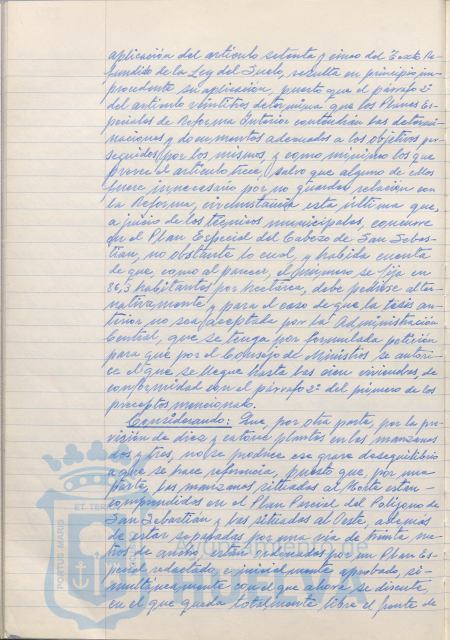 aplicación del artículo setenta y cinco del Texto Re-
fundido de la Ley del Suelo, resulta en principio, im-
procedente su aplicación, puesto que el párrafo 2º
del artículo veintitrés determina que los Planes Es-
peciales de Reforma Interior contendrán las determi-
naciones y documentos adecuados a los objetivos per-
seguidos por los mismos, y como mínimo los que
prevee el artículo trece, salvo que alguno de ellos
fuere innecesario por no guardar relación con
la Reforma, circunstancia esta última que,
a juicio de los técnicos municipales, concurre
en el Plan Especial del Cabezo de San Sebas-
tian, no obstante lo cual, y habida cuenta
de que, como al parecer, el número se fija en
86,3 habitantes por hectárea, debe pedirse alter-
nativamente y para el caso de que la tesis an-
terior no sea aceptada por la Administración
Central, que se tenga por formulada petición
para que por el Consejo de Ministros se autori-
ce el que se llegue hasta las cien viviendas de
conformidad con el párrafo 2º del primero de los
preceptos mencionado.
Considerando: Que, por otra parte, por la pre-
visión de diez y catorce plantas en las manzanas
dos y tres, no se produce ese grave desequilibrio
a que se hace referencia, puesto que, por una
parte, las manzanas situadas al Norte estan
comprendidas en el Plan Parcial del Polígono de
San Sebastian y las situadas al Oeste, además
de estar separadas por una vía de treinta me-
tros de ancho, están ordenadas por un Plan Es-
pecial redactado e inicialmente aprobado, si-
multáneamente con el que ahora se discute,
en el que queda totalmente libre el frente de
PORTUS MARIS
ET TERR
HUELVA